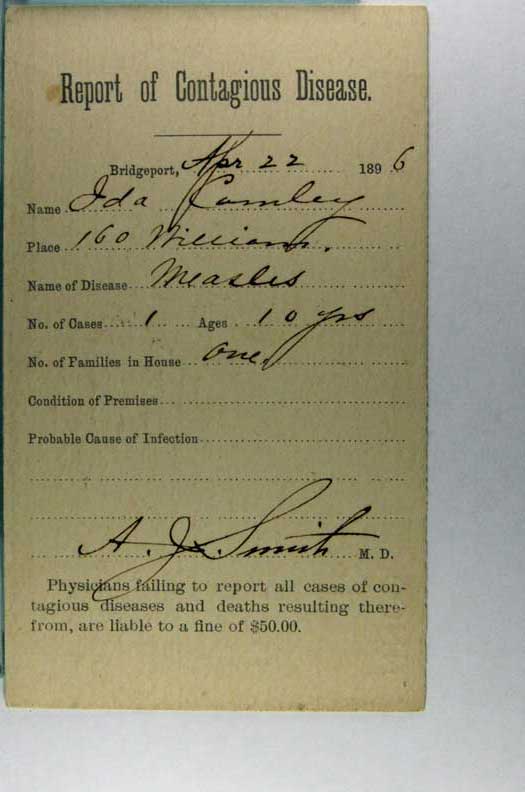 Report of Contagious Disease.
Bridgeport, Apr 22 1896
Name Ida Comley
Place 160 William.
Name of Disease Measles
No. of Cases 1 Ages 10 yrs
No. of Families in House one.
Condition of Premises
Probable Cause of Infection
A. J. Smith M. D.
Physicians failing to report all cases of con-
tagious diseases and deaths resulting there-
from, are liable to a fine of $50.00.